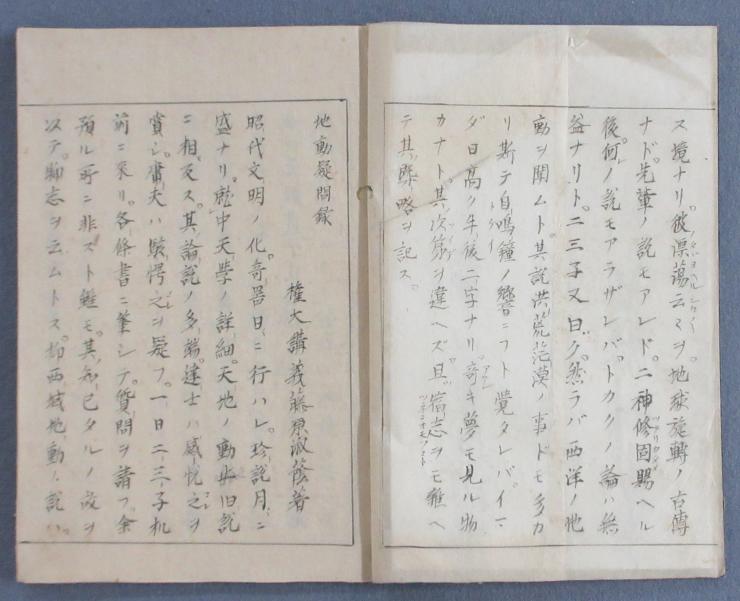 ス境ナリ。彼漂蕩云々ヲ。地球旋轉ノ古傳
ナド。先輩ノ説モアレド。二神修固賜ヘル
後。何ノ説モアラザレバ。トカクノ論ハ無
益ナリト。二三子又曰ク。然ラバ西洋ノ地
動ヲ聞ムト。其説洪荒茫漠ノ事ドモ多カ
リ斯テ自鳴鐘ノ響ニフト覺タレバ。イマ
ダ日高ク午後二字ナリ。奇キ夢モ見ル物
カナト。其次第ヲ違ヘズ。且宿志ヲモ雜ヘ
テ其槩略ヲ記ス。
地動疑問録
權大講義藤原淑蔭著
昭代文明ノ化。奇器日ニ行ハレ。珍説月ニ
盛ナリ。就中天學ノ詳細。天地ノ動止旧説
ニ相反ス。其論説ノ多端。達士ハ感悦之ヲ
賞シ。庸夫ハ駭愕之ヲ疑フ。一日二三子机
前ニ来リ。各條書ニ筆シテ。質問ヲ請フ。余
預ル所ニ非スト雖モ。其知己タルノ故ヲ
以テ。鄙志ヲ云ムトス。抑西域地動ノ説ハ。